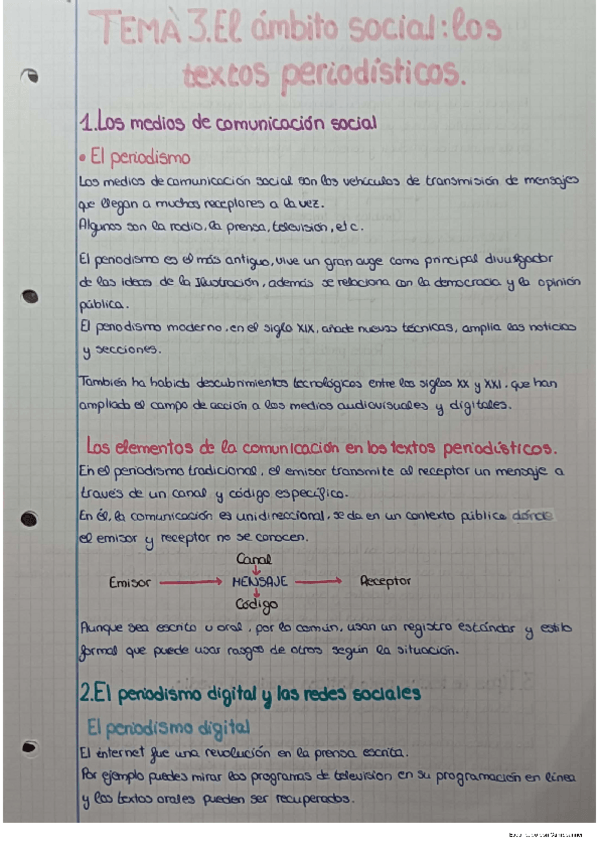 TEMA 3.El ámbito social: los
textos periodísticos.
1.Los medios de comunicación social
• El periodismo
Los medios de comunicación social son los vehículos de transmisión de mensajes
que llegan a muchos receptores a la vez.
Algunos son la radio, la prensa, television, etc.
El periodismo es el más antiguo, vive un gran auge como principal divulgador
de las ideas de la Ilustración, además se relaciona con la democracia y la opinión
pública.
El periodismo moderno, en el siglo XIX, añade nuevas técnicas, amplia las noticias
y secciones.
También ha habido descubrimientos tecnológicos entre los siglos XX y XXI, que han
ampliado el campo de acción a los medios audiovisuales y digitales.
Los elementos de la comunicación en los textos periodísticos.
En el periodismo tradicional, el emisor transmite al receptor un mensaje a
través de un canal y código específico.
En él, la comunicación es unidireccional, se da en un contexto público dónde
el emisor y receptor no se conocen.
Canal
Emisor → MENSAJE → Receptor
Código
Aunque sea escrito u oral, por lo común, usan un registro estándar y estilo
formal que puede usar rasgos de otros según la situación.
2.El periodismo digital y las redes sociales
El periodismo digital
El internet fue una revolución en la prensa escrita.
Por ejemplo puedes mirar los programas de television en su programación en línea
y los textos orales pueden ser recuperados.